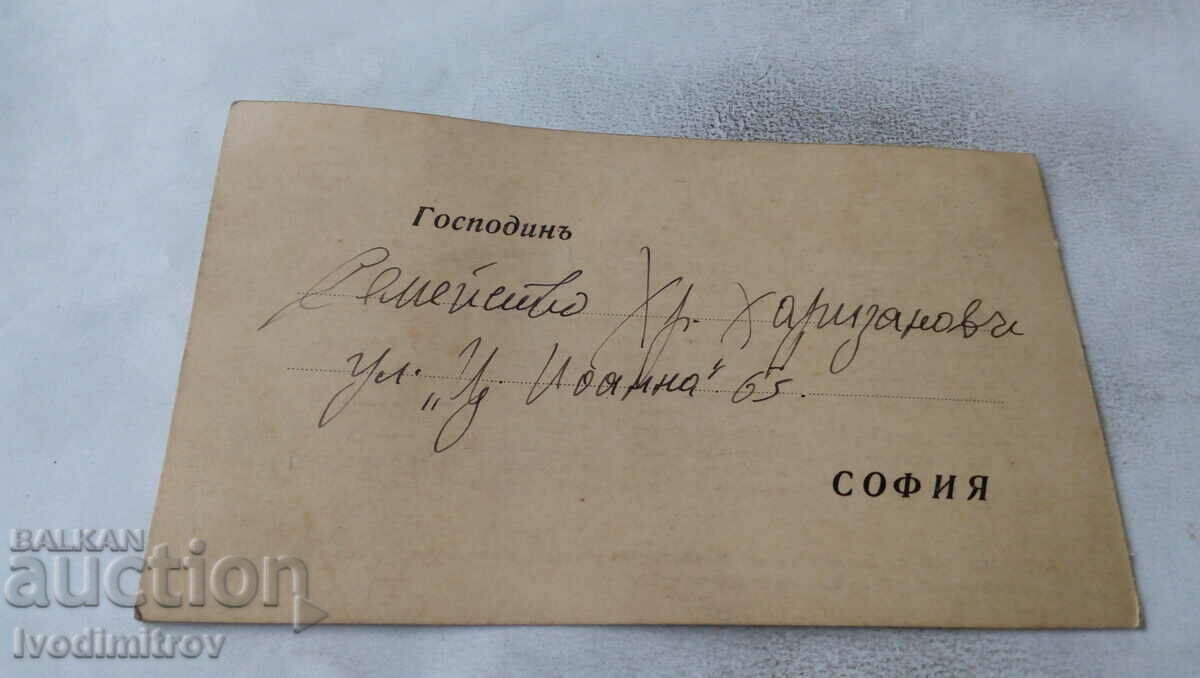 Господинъ
Семейство Хр. Харизанови
ул. „Ц. Иоанна“ 65.
СОФИЯ
BALKAN
auction
Ivodimitrov